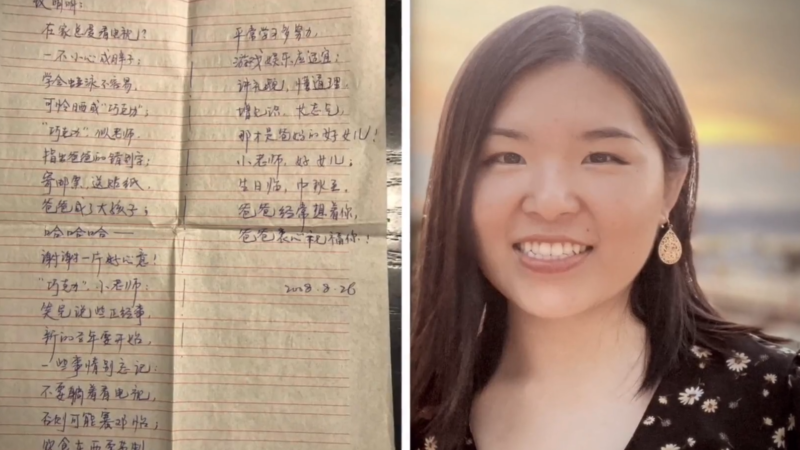 在家总是看电视?
一不小心成胖子;
学会蛙泳不容易,
可怜晒成“巧克力”;
“巧克力”似老师,
指出爸爸的错别字;
寄邮票,送贴纸,
爸爸成了大孩子;
哈哈哈——
谢谢一片好心意!
“巧克力”,小老师:
笑完说些正经事,
新的学年要开始,
一些事情别忘记:
不要躺着看电视,
否则可能
平常学习多努力,
游戏娱乐应适宜;
讲礼貌,懂道理,
增知识,大志气,
那才是爸妈的好女儿!
小老师,好女儿;
生日临,中秋至,
爸爸经常想着你,
爸爸衷心祝福你!
2008.8.26